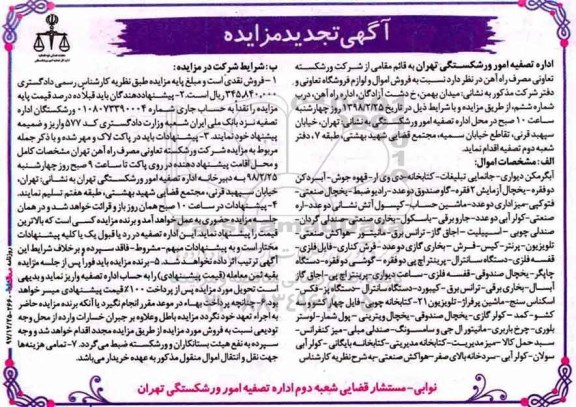 آگهی تجدید مزایده
اداره تصفیه امور ورشکستگی تهران به قائم مقامی از شرکت ورشکسته
تعاونی مصرف راه آهن در نظر دارد نسبت به فروش اموال و لوازم فروشگاه تعاونی و
دفتر شرکت مذکور به نشانی: میدان بهمن، خ دشت آزادگان، اداره راه آهن، درب
شماره ششم، از طریق مزایده و با شرایط ذیل در تاریخ ۱۳۹۸/۲/۲۵ روز چهارشنبه
ساعت ۱۰ صبح در محل اداره تصفیه امور ورشکستگی به نشانی تهران، خیابان
سپهبد قرنی، تقاطع خیابان سمیه، مجتمع قضایی شهید بهشتی، طبقه ۷، دفتر
شعبه دوم تصفیه اقدام نماید.
الف: مشخصات اموال:
آبگرمکن دیواری- جانمایی تبلیغات- کتابخانه جی وی ار- قهوه جوش- آبسردکن
دو فقره- یخچال آزمایش ۲ فقره- گاوصندوق دو عدد- رادیو ضبط- یخچال صنعتی-
فتوکپی- میز اداری دو عدد- ماشین حساب- کپسول آتش نشانی دو عدد- اره
صنعتی- کولر آبی دو عدد- جارو برقی- باسکول- بخاری صنعتی- صندلی گردان-
صندلی چوبی - اسپیلیت - اجاق گاز- ترانس برق- کانتر- هواکش- میز
تلویزیون- پرنتر- کیس- فرش- بخاری گازی دو عدد- فرش کناری- فایل فلزی-
قفسه فلزی- دستگاه سانترال- پرینتر اچ پی دو فقره- گوشی دو فقره- دستگاه
چاپگر- یخچال صندوقی- قفسه فلزی- ساعت دیواری- پرینتر اچ پی- اجاق گاز
آبسال- بخاری برقی- ترانس برق- کیبورد- دستگاه سانترال- دستگاه پز- فکس-
اسکناس سنج- ماشین پرفراژ- تلویزیون ۲۱- کتابخانه چوبی- فایل چهار کشو- دو
کشو- کمد- کولر گازی- یخچال صندوقی- یخچال ویترینی- پول شمار- لوستر
بلوری- چرخ باربری- مانیتور ال جی و سامسونگ- صندلی مبلی- میز کنفرانس-
سبد حمل کالا- میز مدیریت- کتابخانه مدیریتی- کتابخانه بایگانی- کولر آبی
سولان- کولر آبی- سردخانه بالای صفر- هواکش صنعتی- به شرح نظریه کارشناس
ب: شرایط شرکت در مزایده:
۱- فروش نقدی است و مبلغ پایه مزایده طبق نظریه کارشناس رسمی دادگستری
۳۴۵,۸۴۰,۰۰۰ ریال است. ۲- پیشنهاددهندگان باید قبلا ده درصد قیمت پایه
مزایده را نقداً به حساب جاری شماره ۱۰۸۰۷۳۳۹۰۰۰۴ ورشکستگان اداره
تصفیه نزد بانک ملی ایران شعبه وزارت دادگستری کد ۵۷۷ واریز و ضمیمه
پیشنهاد خود نمایند. ۳- پیشنهادات باید در پاکت لاک و مهر شده و با ذکر جمله
مربوط به مزایده شرکت ورشکسته تعاونی مصرف راه آهن تهران مشخصات کامل
و محل اقامت پیشنهاد دهنده در روی پاکت تا ساعت ۹ صبح روز چهارشنبه
۹۸/۲/۲۵ به دبیرخانه اداره تصفیه امور ورشکستگی تهران به نشانی: تهران،
خیابان سپهبد قرنی، مجتمع قضایی شهید بهشتی، طبقه هفتم تسلیم نمایند.
۴- پیشنهادات در ساعت ۱۰ صبح همان روز باز و قرائت خواهد شد، و در همان
جلسه مزایده حضوری به عمل خواهد آمد و برنده مزایده کسی است که بالاترین
قیمت را پیشنهاد نماید. این اداره تصفیه در رد یا قبول یک یا کلیه پیشنهادات
مختار است و به پیشنهادات مبهم- مشروط- فاقد سپرده و برخلاف شرایط این
آگهی ترتیب اثر داده نخواهد شد. ۵- برنده مزایده باید فوراً پس از جلسه مزایده
بقیه ثمن معامله (قیمت پیشنهادی) را به حساب اداره تصفیه واریز نماید و بدیهی
است تحویل مورد مزایده پس از پرداخت ۱۰۰٪ قیمت پیشنهادی میسر خواهد
بود. ۶- چنانچه پرداخت بهاء در موعد مقرر انجام نگیرد یا آنکه برنده مزایده حاضر
به اجراء تعهد خود نگردد مزایده باطل و علاوه بر جبران خسارات وارده از محل وجه
تودیعی نسبت به فروش مورد مزایده از طریق مزایده مجدد اقدام خواهد شد و وجه
سپرده به نفع هیئت بستانکاران و ورشکسته ضبط می گردد. ۷- تمامی هزینه ها
جهت نقل و انتقال اموال منقول مذکور به عهده خریدار می باشد.
نوابی- مستشار قضایی شعبه دوم اداره تصفیه امور ورشکستگی تهران